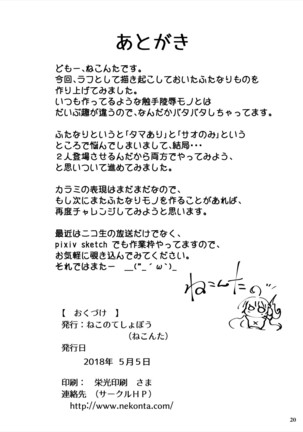 あとがき
どもー、ねこんたです。
今回、ラフとして描き起こしておいたふたなりものを
作り上げてみました。
いつも作ってるような触手陵辱モノとは
だいぶ趣が違うので、なんだかバタバタしちゃってます。
ふたなりというと「タマあり」と「サオのみ」という
ところで悩んでしまいまして、結局・・・
２人登場させるんだから両方でやってみよう、
と思いついて進めてみました。
カラミの表現はまだまだなので、
もし次にまたふたなりモノを作ることがあれば、
再度チャレンジしてみようと思います。
最近はニコ生の放送だけでなく、
pixiv sketch でも作業枠やってますので、
お気軽に覗き込んでみてください。
それではまたー __(“_´ω｀)_
ねこんたの
【 おくづけ 】
発行：ねこのてしょぼう
（ねこんた）
発行日
2018年 ５月５日
印刷： 栄光印刷 さま
連絡先 （サークルＨＰ）
http://www.nekonta.com/
20